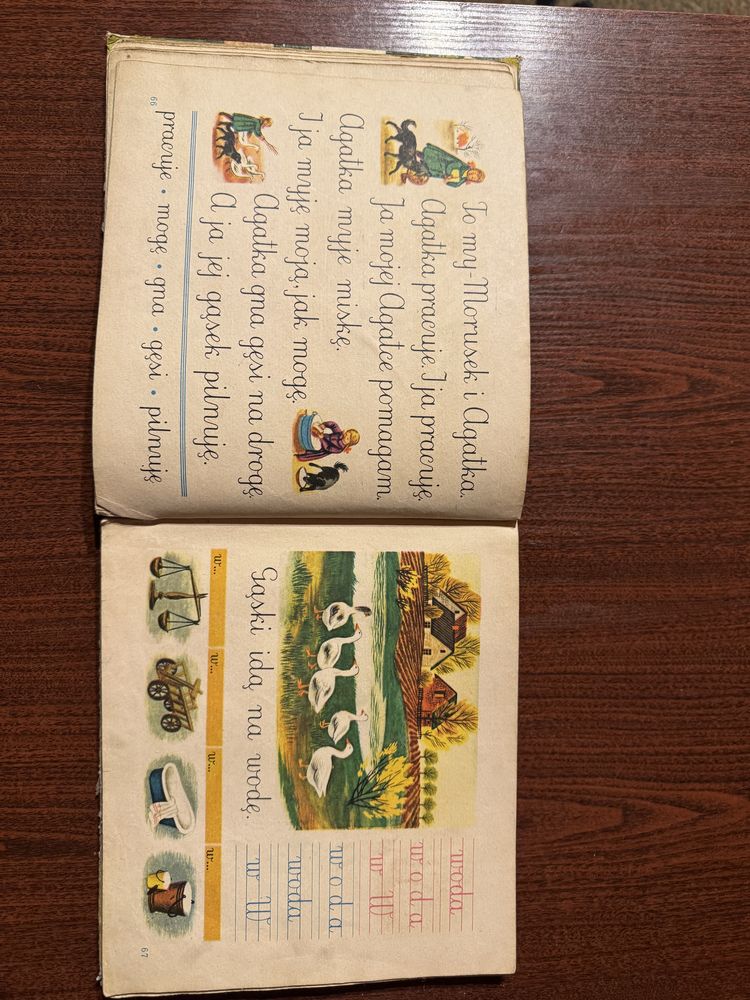 To my-Morusek i Agatka.
Agatka pracuje. I ja pracuję.
Ja mojej Agatce pomagam.
Agatka myje miskę.
I ja myję moją, jak mogę.
Agatka gna gęsi na drogę.
A ja jej gąsek pilnuję.
pracuje • mogę • gna • gęsi • pilnuję
66
woda
w o d a
w W
w o d a
woda
w W
Gąski idą na wodę.
w... w... w... w...
67